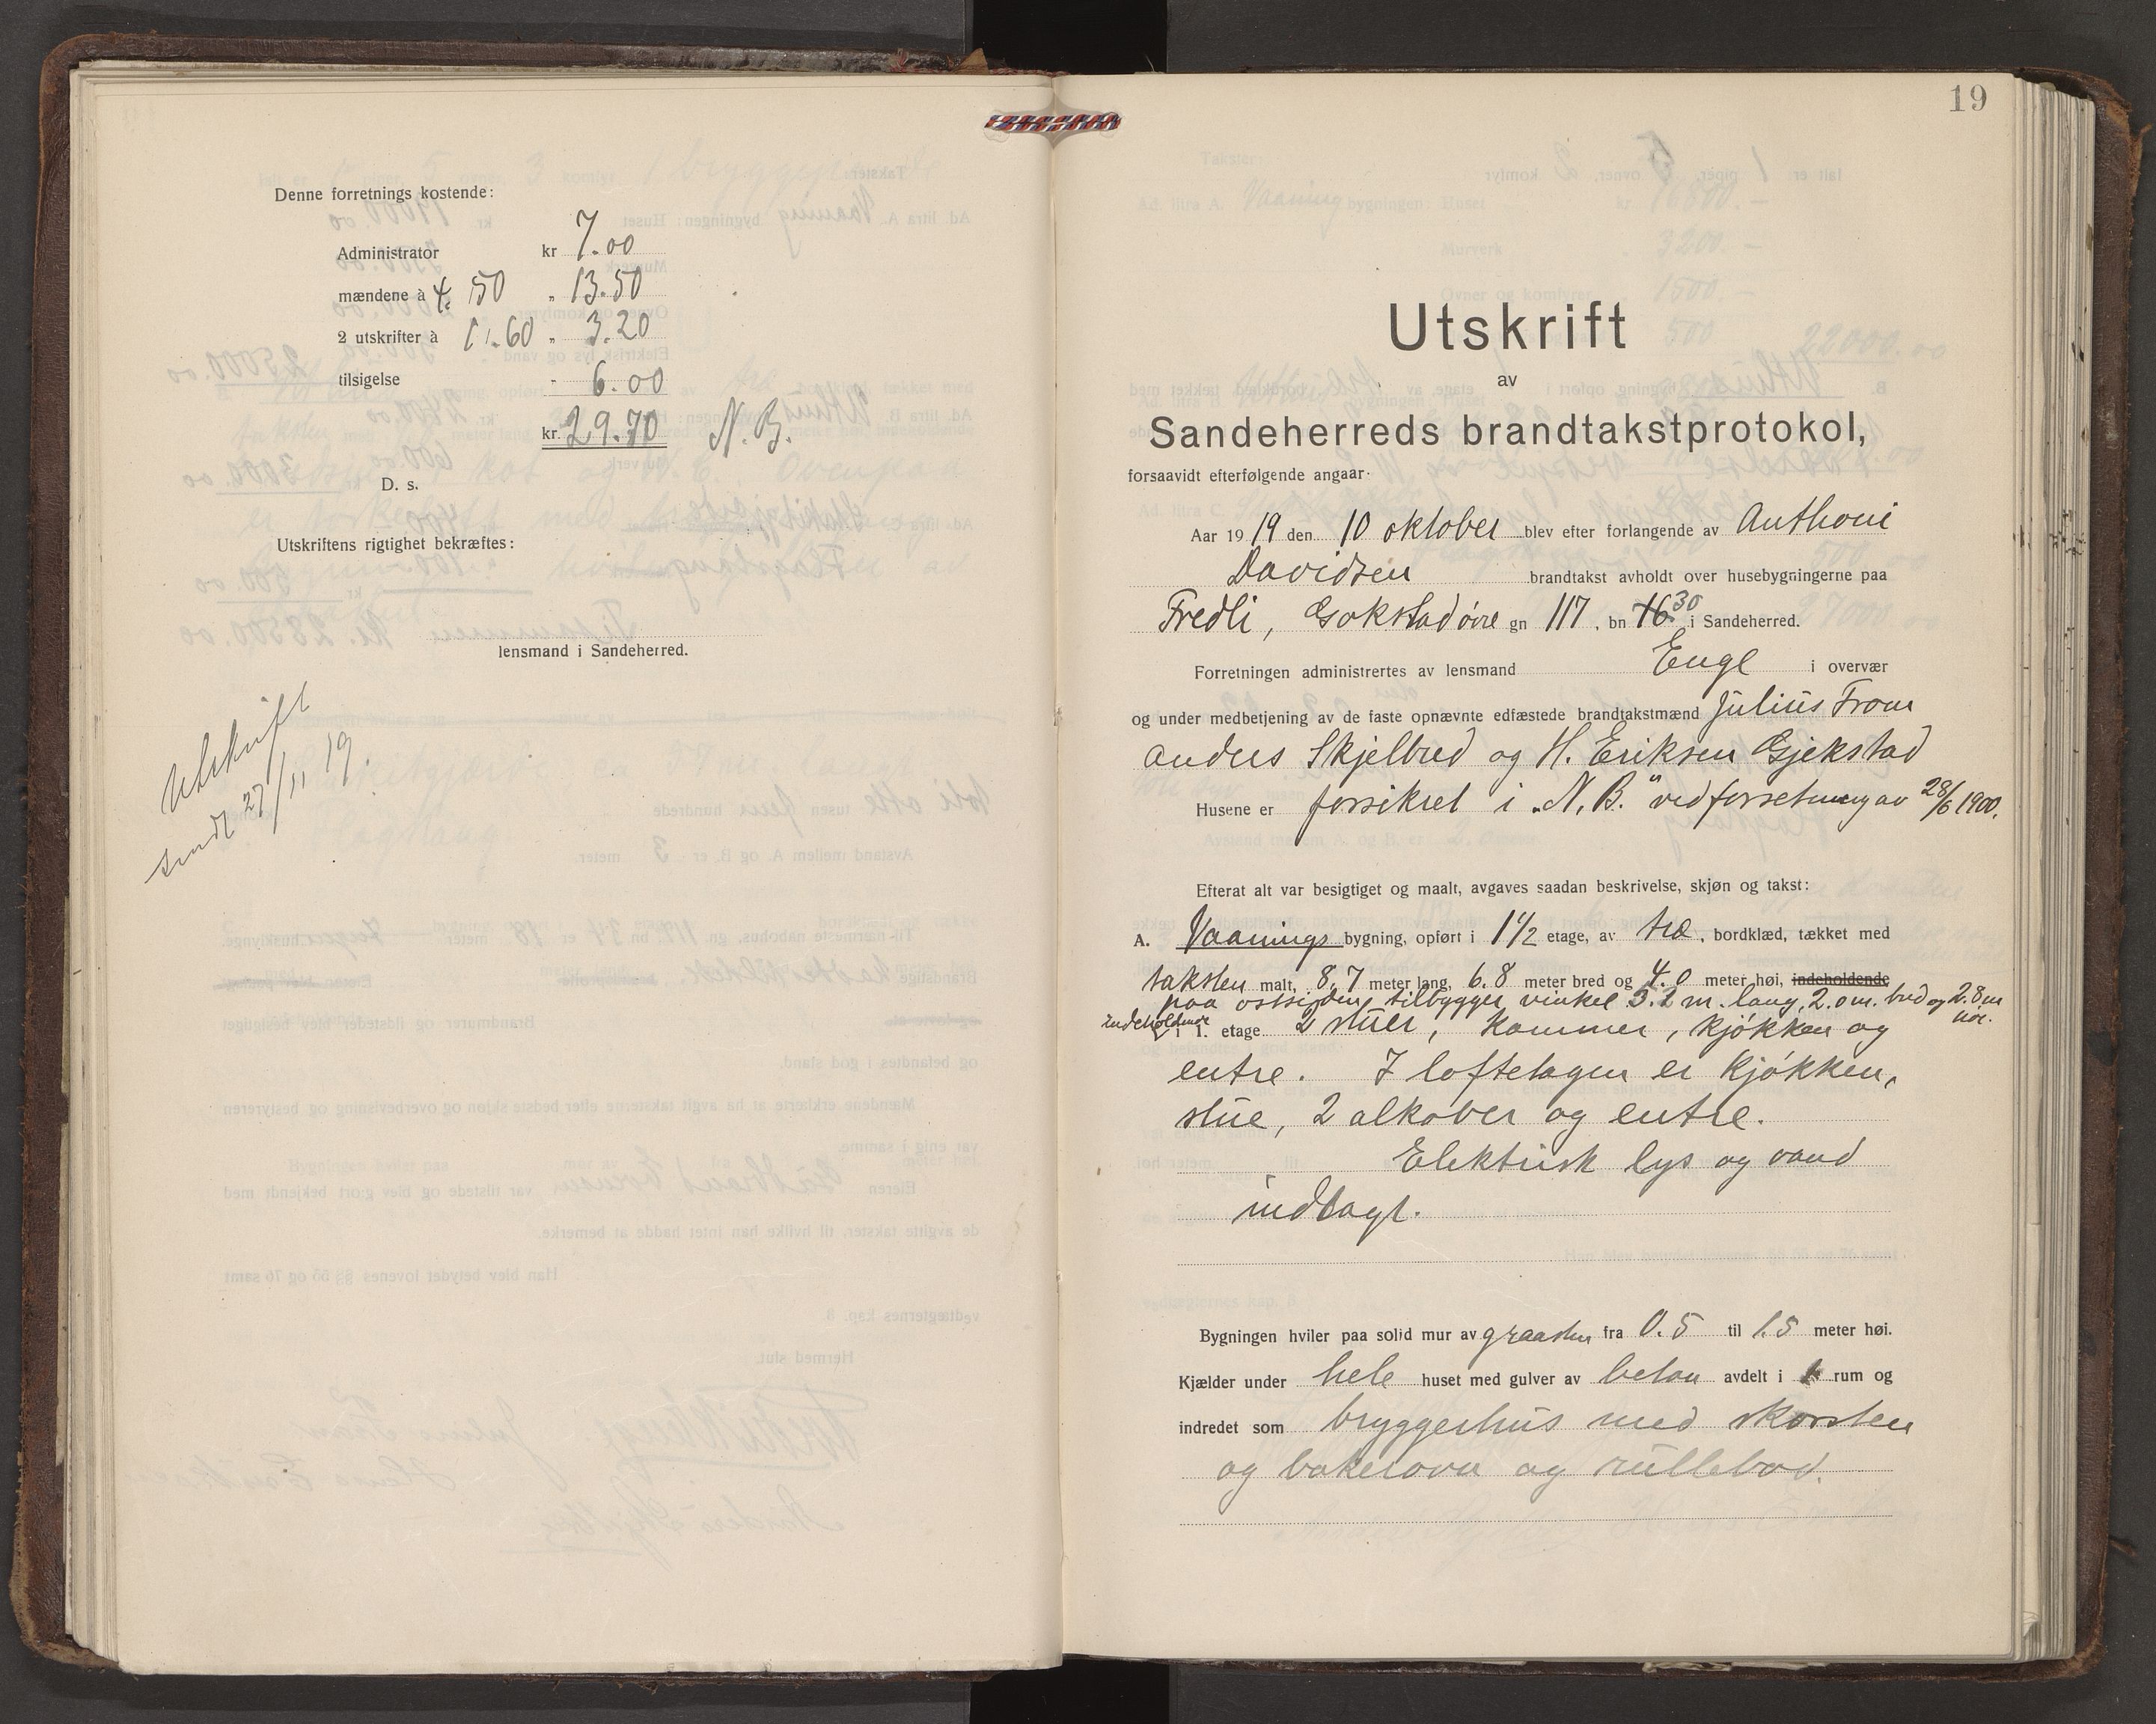 Denne forretnings kostende:
Administrator kr 7.00
mændene à 4.50 „ 13.50
2 utskrifter à 1.60 „ 3.20
tilsigelse „ 6.00
kr. 29.70 N. B.
D. s.
Utskriftens rigtighet bekræftes:
lensmand i Sandeherred.
Utskrift
sendt 27/11 19.
19
Utskrift
av
Sandeherreds brandtakstprotokol,
forsaavidt efterfølgende angaar:
Aar 1919 den 10 oktober blev efter forlangende av Anthoni
Davidsen brandtakst avholdt over husebygningerne paa
Fredli, Gokstad øvre gn 117, bn 76. 30 i Sandeherred.
Forretningen administrertes av lensmand Enge i overvær
og under medbetjening av de faste opnævnte edfæstede brandtakstmænd Julius From
Anders Skjelbred og H. Eriksen Gjekstad
Husene er forsikret i „N. B." ved forretning av 28/6 1900.
Efterat alt var besigtiget og maalt, avgaves saadan beskrivelse, skjøn og takst:
A. Vaanings bygning, opført i 1 1/2 etage, av træ, bordklæd, tækket med
taksten malt, 8.7 meter lang, 6.8 meter bred og 4.0 meter høi, indeholdende
paa østsiden tilbygget vinkel 3.2 m. lang, 2.0 m. bred og 2.8 m høi.
Indeholdende i 1. etage 2 stuer, kammer, kjøkken og
entre. I loftetagen er kjøkken,
stue, 2 alkover og entre.
Elektrisk lys og vand
indlagt.
Bygningen hviler paa solid mur av graasten fra 0.5 til 1.5 meter høi.
Kjælder under hele huset med gulver av beton avdelt i rum og
indredet som bryggerhus med skorsten
og bakerovn og rullebod.